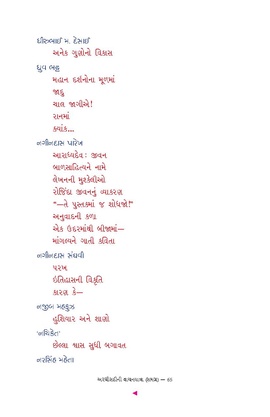 ધીરુભાઈ મ. દેસાઈ
અનેક ગુણોનો વિકાસ
ધ્રુવ ભટ્ટ
મહાન દર્શનોના મૂળમાં
જાદુ
ચાલ જાગીએ!
રાનમાં
ક્યાંક...
નગીનદાસ પારેખ
આરાધ્યદેવ: જીવન
બાળસાહિત્યને નામે
લેખનની મુશ્કેલીઓ
રોજિંદા જીવનનું વ્યાકરણ
“—તે પુસ્તકમાં જ શોધજો!”
અનુવાદની કળા
એક ઉદરમાંથી બીજામાં—
માંગલ્યને ગાતી કવિતા
નગીનદાસ સંઘવી
પરખ
ઇતિહાસની વિકૃતિ
કારણ કે—
નજીબ મહફૂઝ
હુશિયાર અને શાણો
'નચિકેત'
છેલ્લા શ્વાસ સુધી બગાવત
નરસિંહ મહેતા
અરધીસદીની વાચનયાત્રા